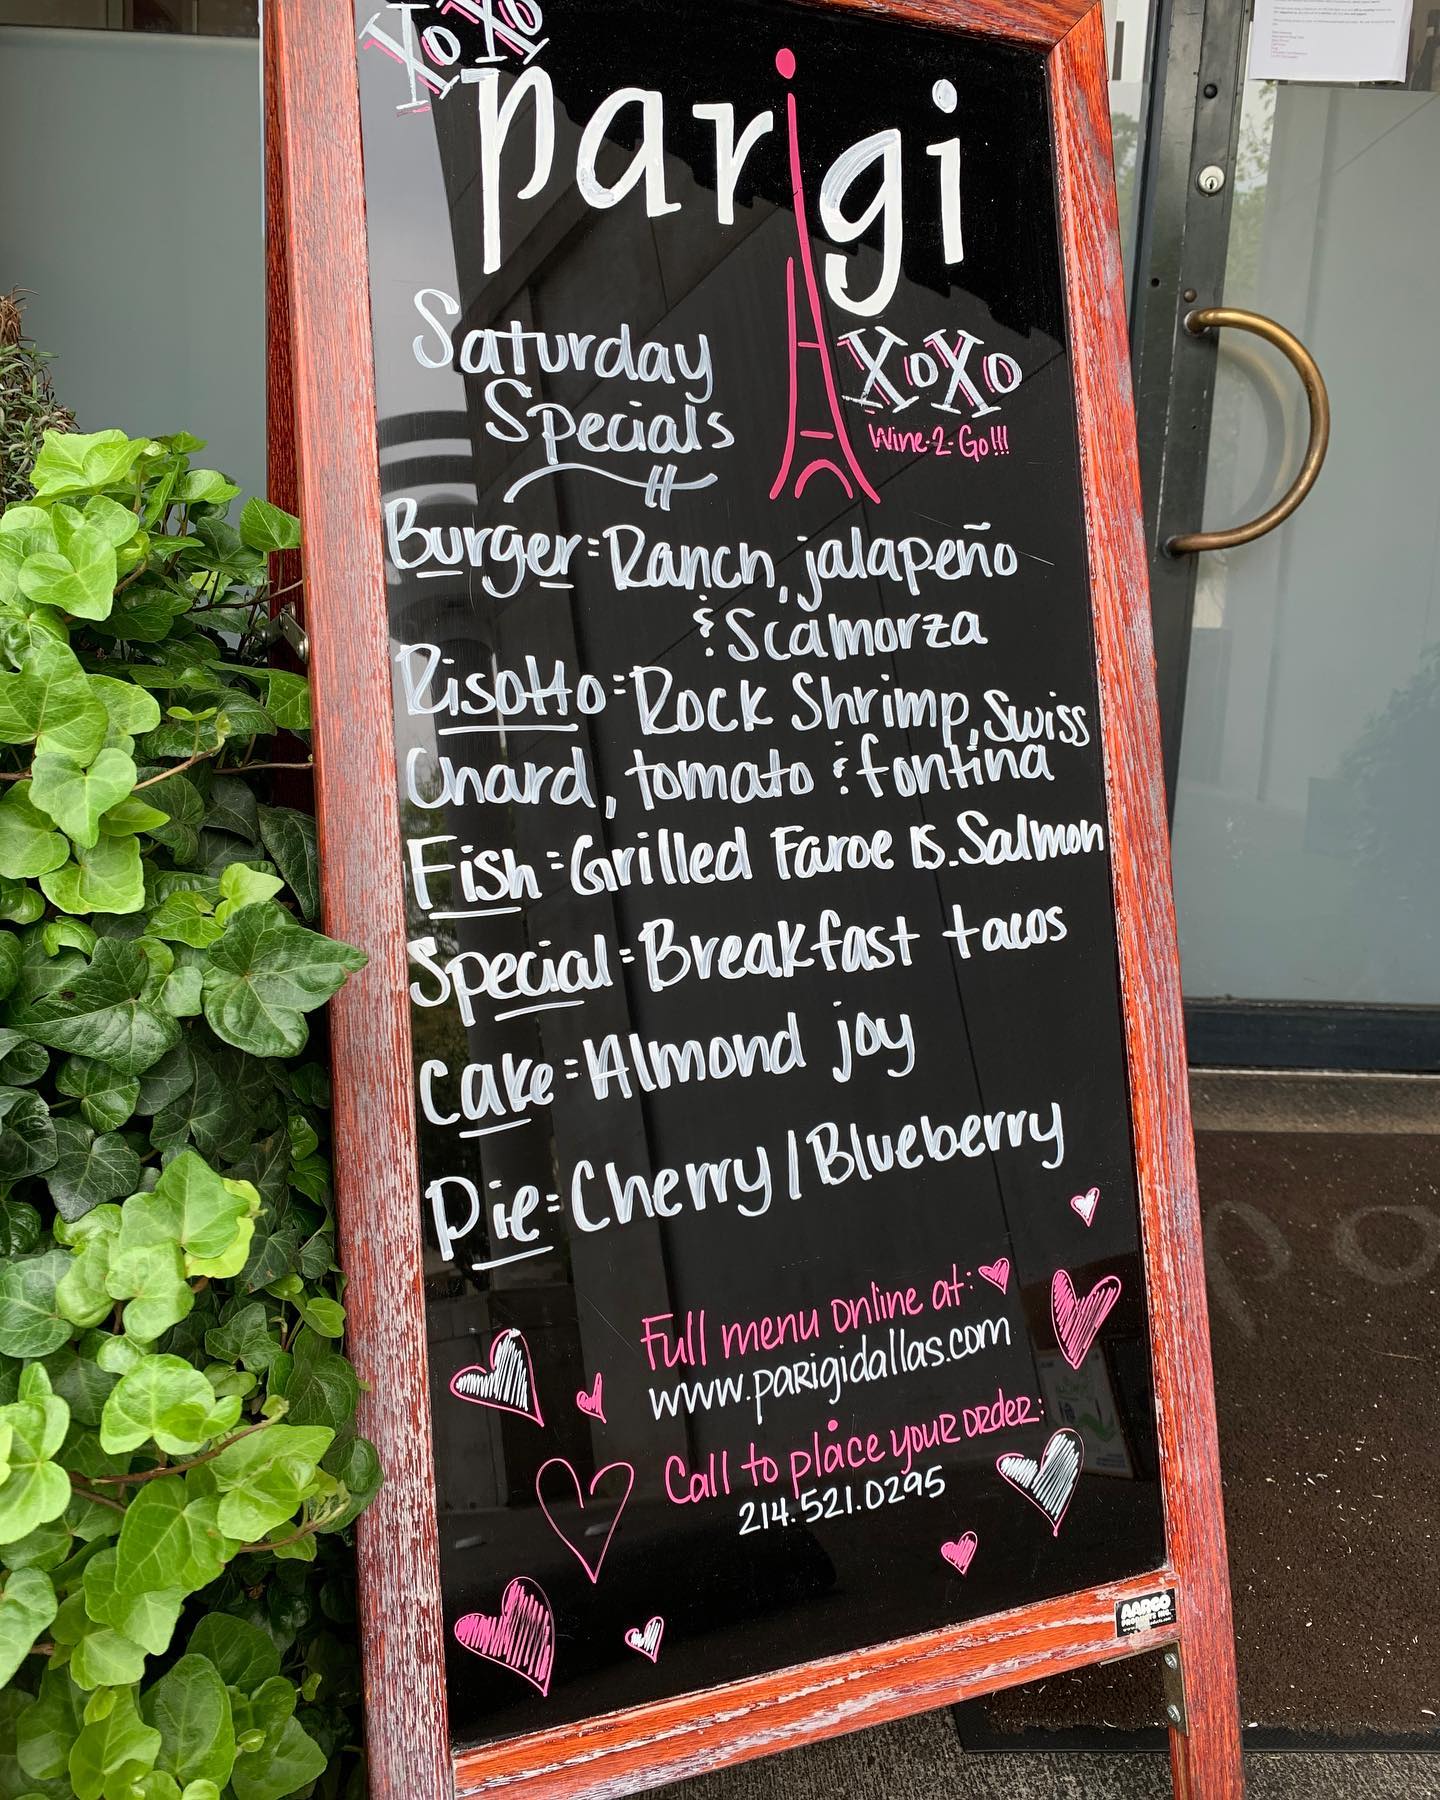 XOXO
parigi
Saturday
Specials
XOXO
Wine-2-Go!!!
Burger: Ranch, jalapeño
& Scamorza
Risotto: Rock Shrimp, Swiss
Chard, tomato & fontina
Fish: Grilled Faroe Is. Salmon
Special: Breakfast tacos
Cake: Almond joy
Pie: Cherry/Blueberry
Full menu online at:
www.parigidallas.com
Call to place your order:
214.521.0295
AARCO
PRODUCTS INC.